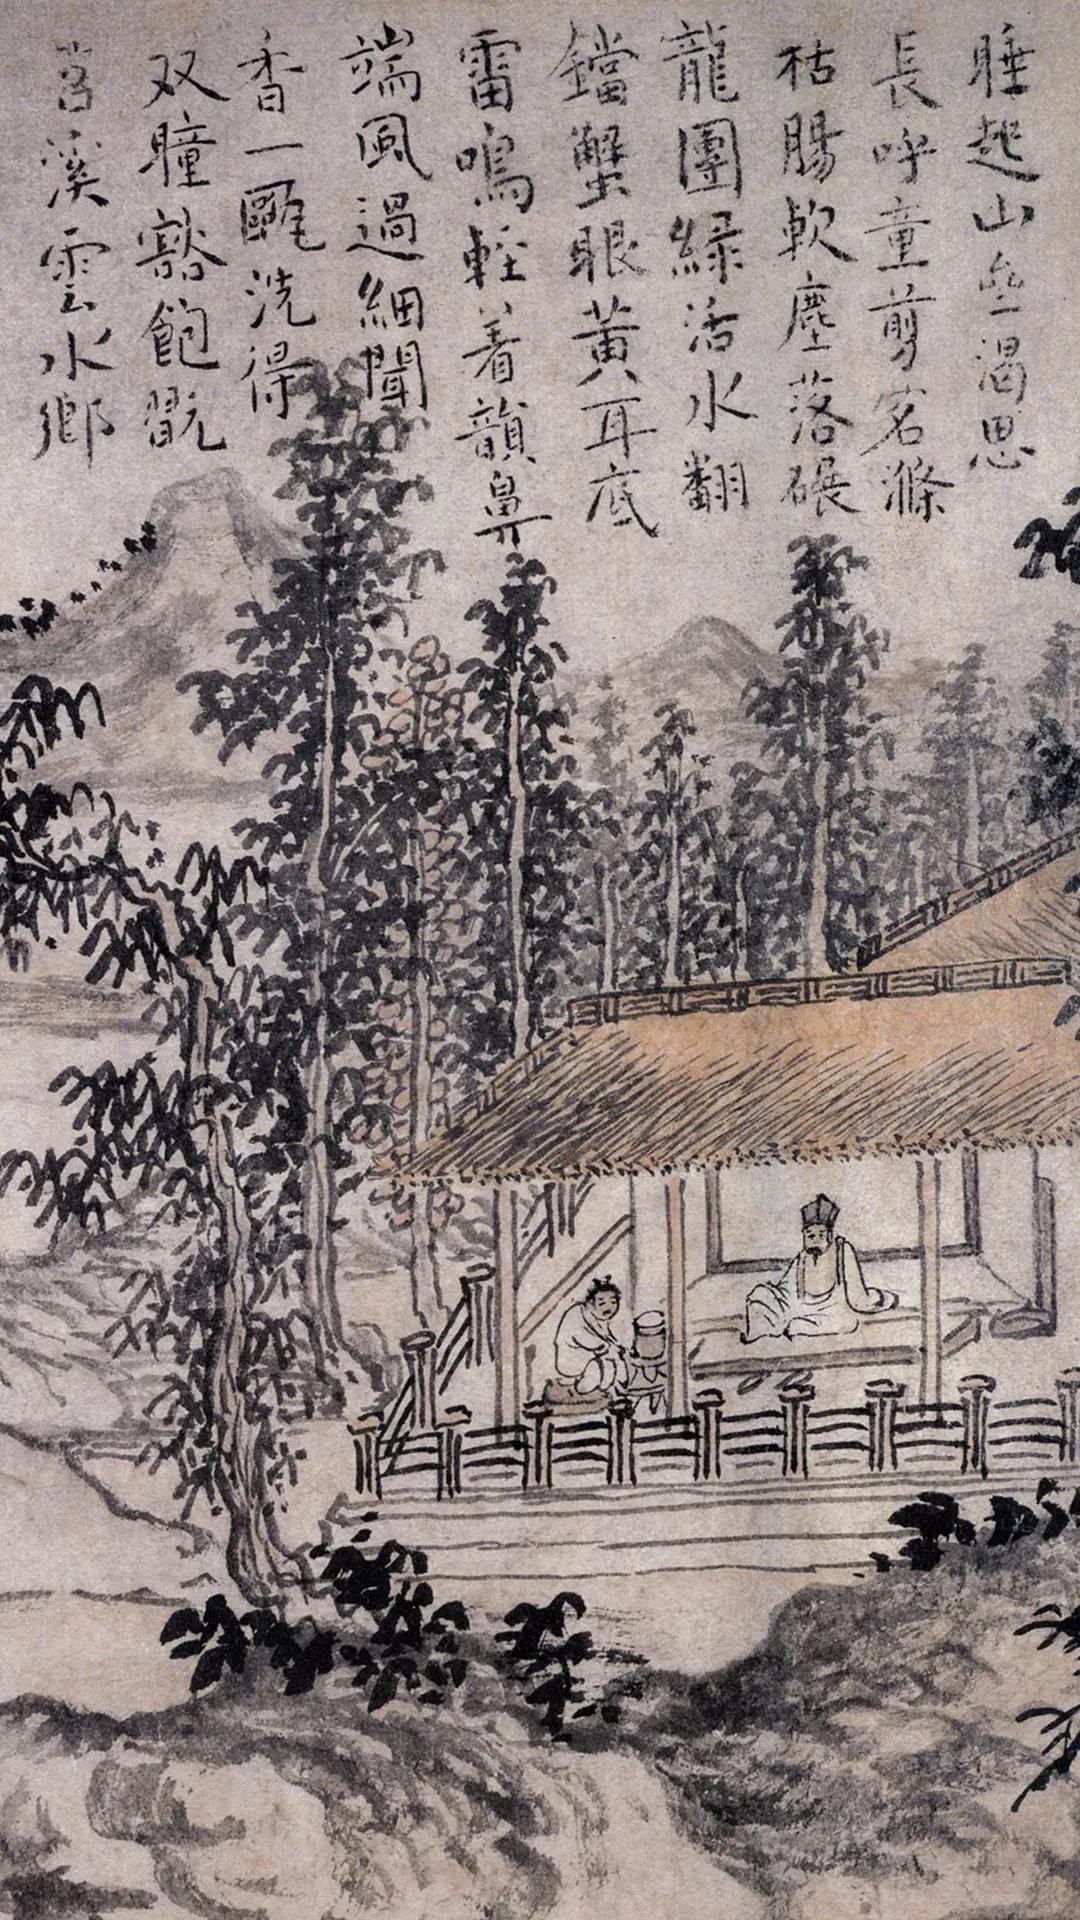 睡起山垒渴思
長呼童剪茗滌
枯腸軟塵落碾
龍團綠活水翻
鐺蟹眼黃耳底
雷鳴輕着韻鼻
端風過細聞
香一甌洗得
双瞳豁飽翫
苕溪雲水鄉